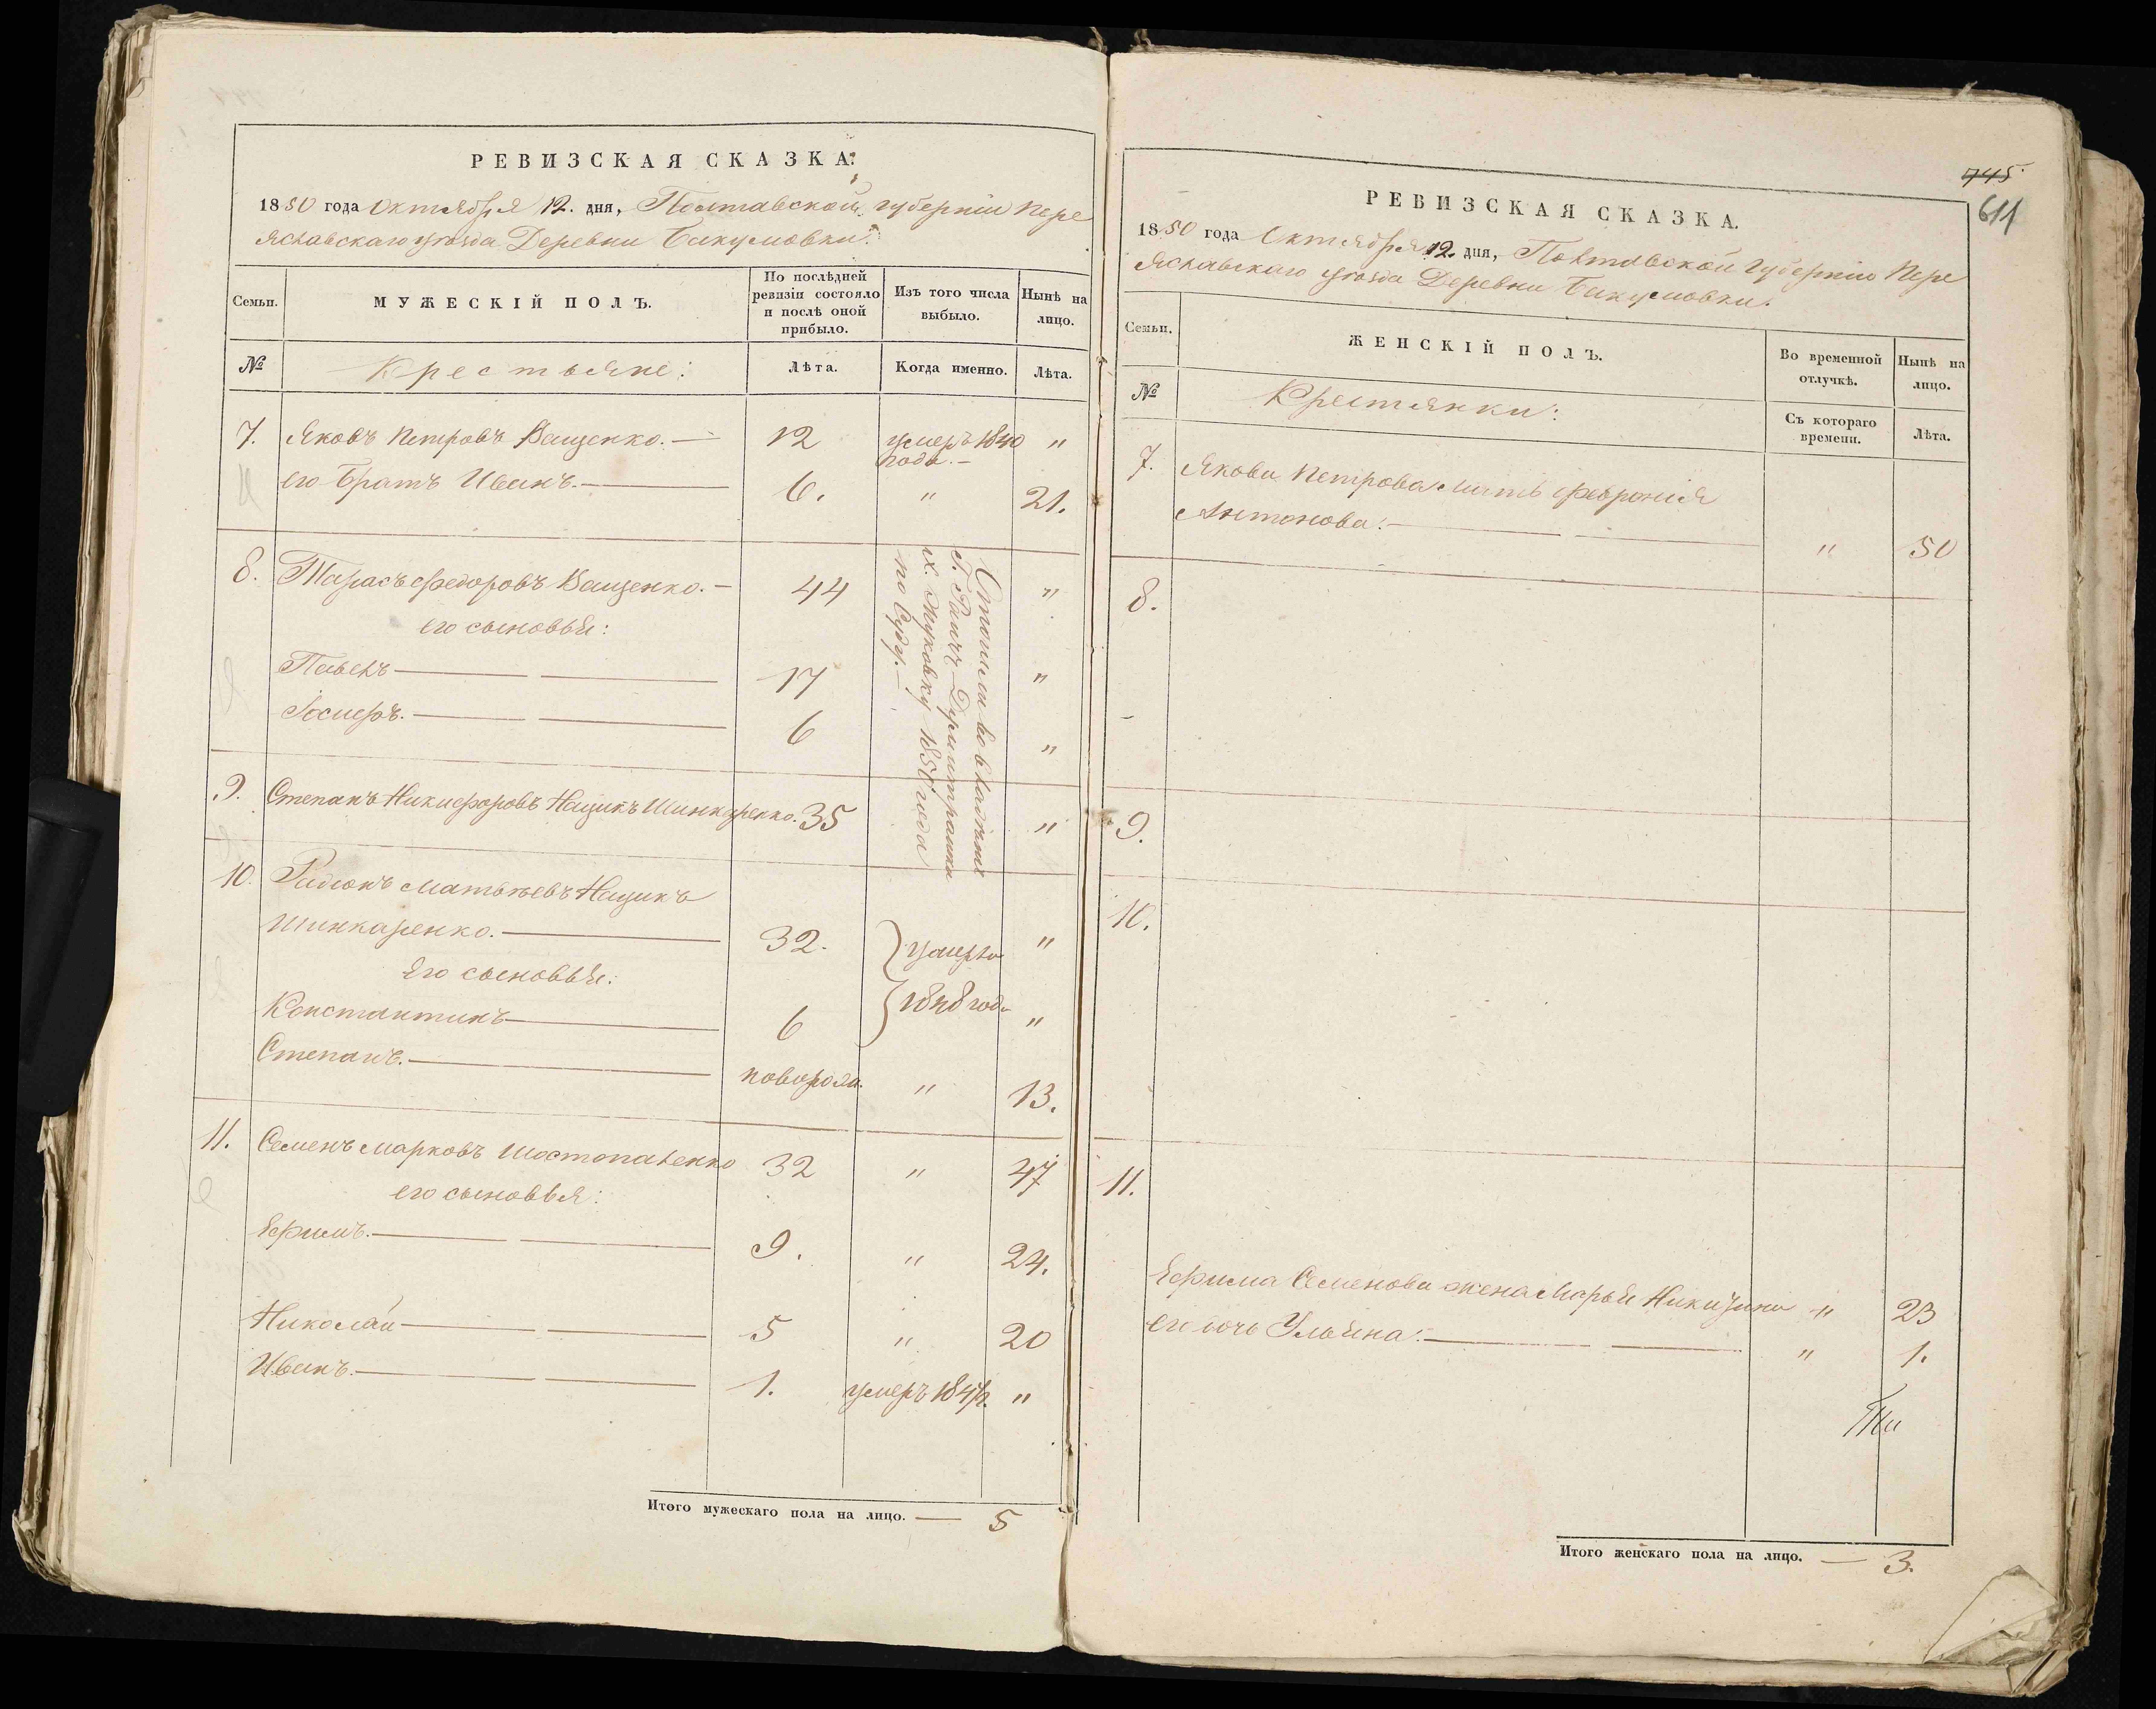 РЕВИЗСКАЯ СКАЗКА.
1850 года Октября 12. дня, Полтавской губернiи Пере
яславскаго уѣзда Деревни Бакумовки.
Семьи.
МУЖЕСКІЙ ПОЛЪ.
По послѣдней ревизіи состояло и послѣ оной прибыло.
Изъ того числа выбыло.
Нынѣ на лицо.
№
Крестьяне:
Лѣта.
Когда именно.
Лѣта.
7. Яковъ Петровъ Ващенко. — 12 умеръ 1840 года. — "
его братъ Иванъ. — 6. " 21.
8. Тарасъ Федоровъ Ващенко. — 44 "
его сыновья:
Павелъ — 17 "
Іосифъ. — 6 "
9. Степанъ Никифоровъ Нащикъ Шинкаренко. 35 "
Отошли во владѣнiе
г. Дмитрашки
х. Жуковку 1850 года
по Суду. —
10. Радіонъ Матвѣевъ Нащикъ
Шинкаренко. — 32. умерли "
его сыновья:
Константинъ — 6 1848 года "
Степанъ. — новорож. " 13.
11. Семенъ Марковъ Шостопаленко 32 " 47
его сыновья:
Ефимъ. — 9. " 24.
Николай — 5 " 20
Иванъ. — 1. умеръ "
Итого мужескаго пола на лицо. — 5
745
611
РЕВИЗСКАЯ СКАЗКА.
1850 года Октября 12. дня, Полтавской Губернiи Пере
яславскаго уѣзда Деревни Бакумовки.
Семьи.
ЖЕНСКІЙ ПОЛЪ.
Во временной отлучкѣ.
Нынѣ на лицо.
№
Крестьянки:
Съ котораго времени.
Лѣта.
7. Якова Петрова мать Февронія
Антонова. — " 50
8.
9.
10.
11.
Ефима Семенова жена Марья Никитина " 23
его дочь Ульяна. — " 1.
Итого женскаго пола на лицо. — 3.